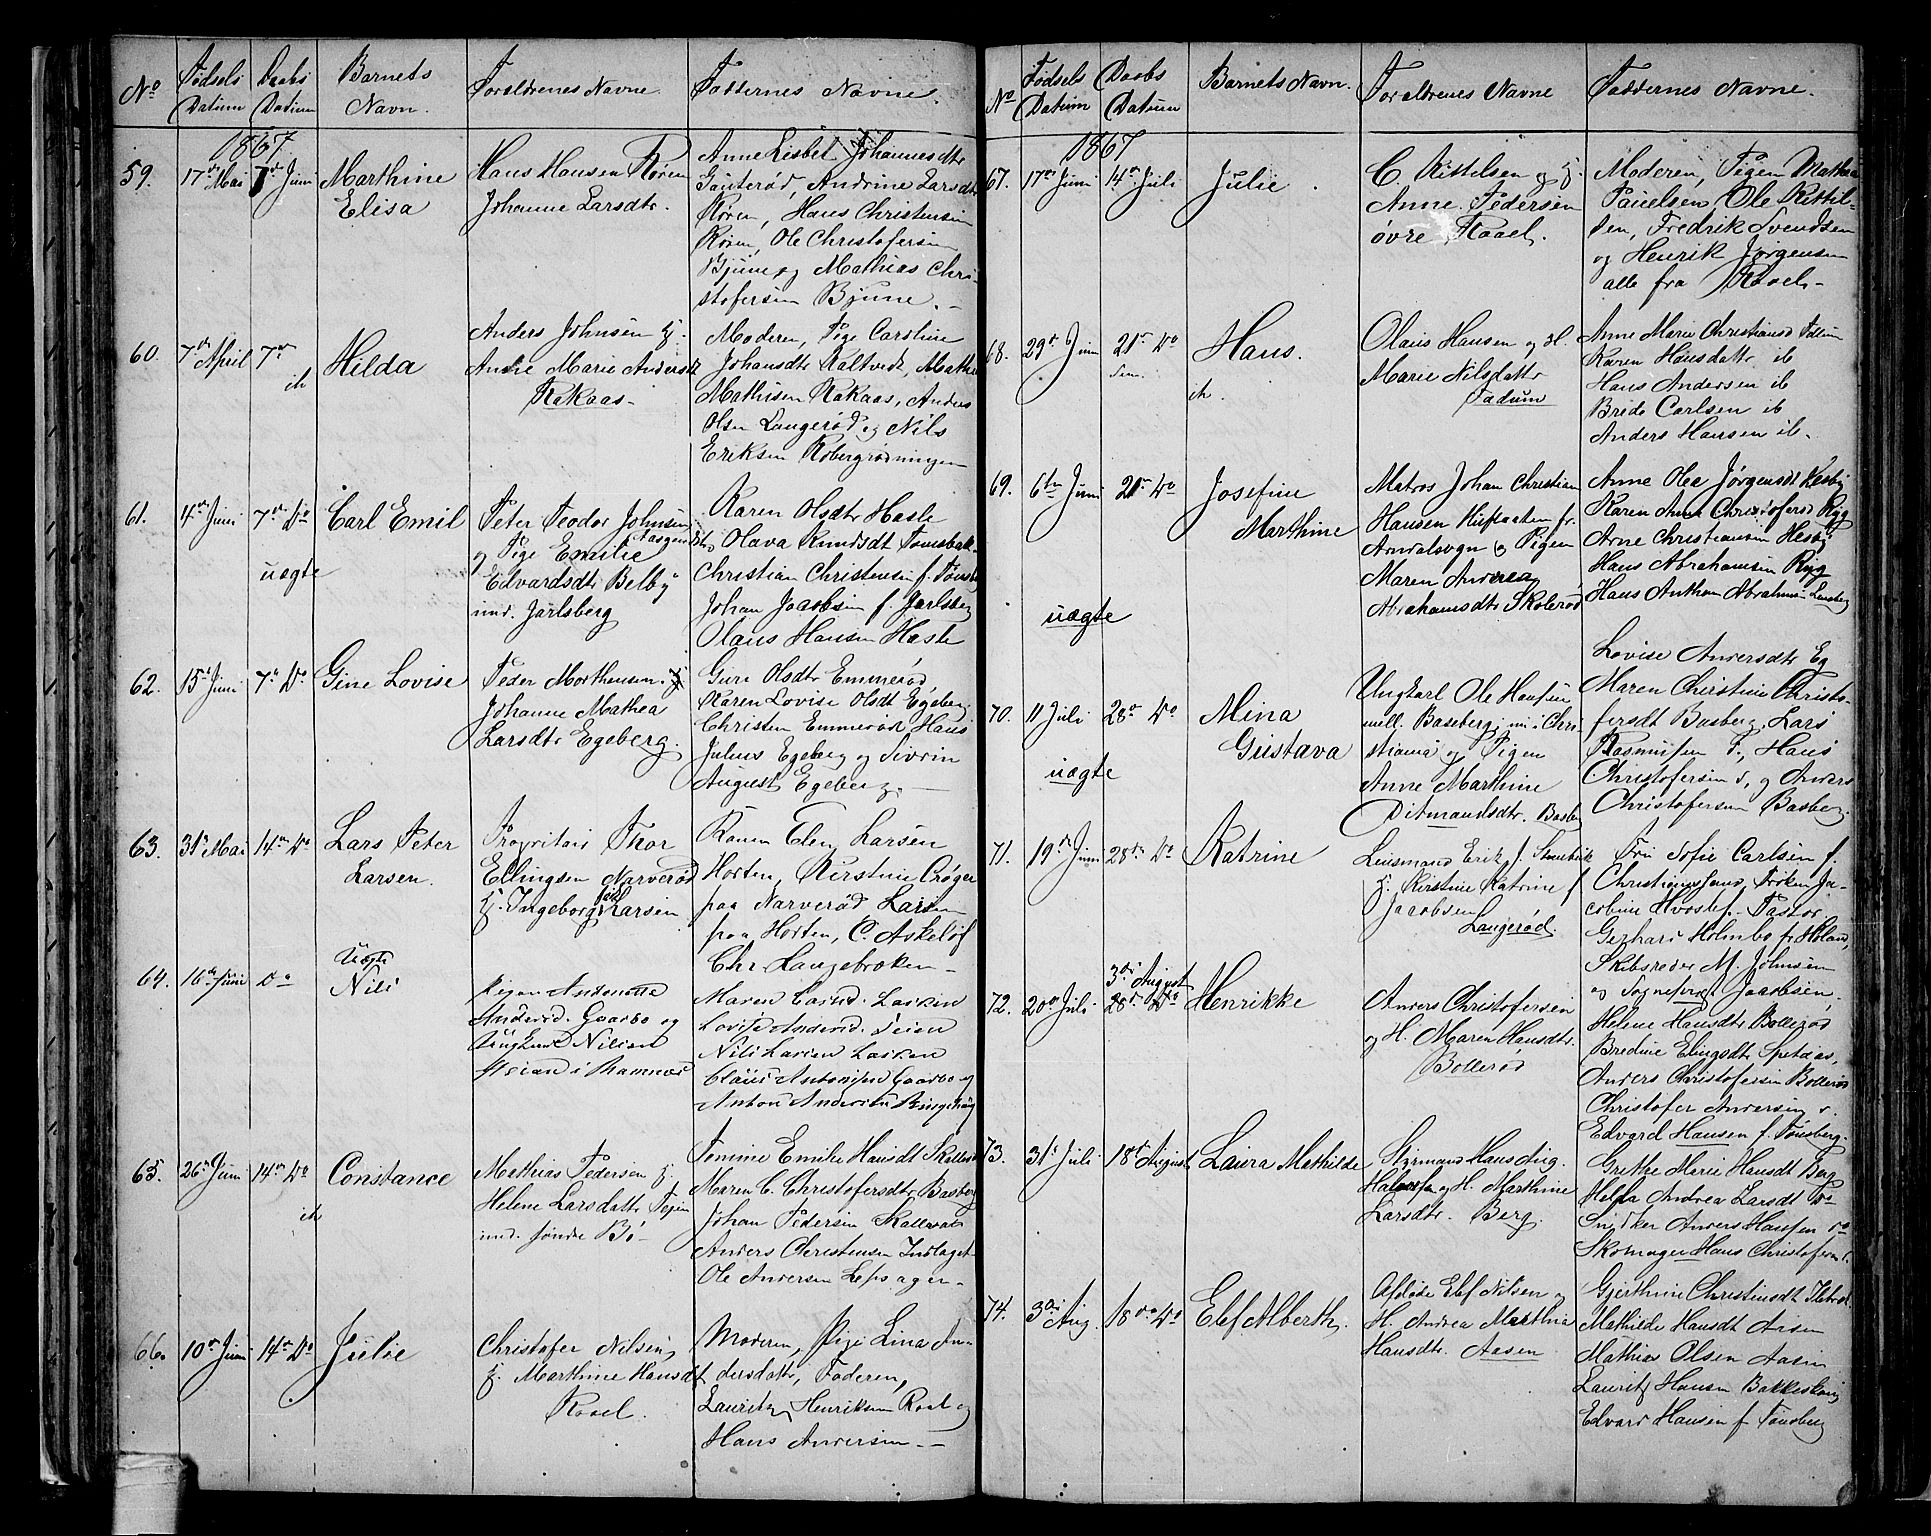 No
Fødsels Datum
Daabs Datum
Barnets Navn.
Forældrenes Navne.
Faddernes Navne.
1867
59.
17de Mai
7de Juni
Marthine
Elisa
Hans Hansen Røren
Johanne Larsdtr.
Anne Lisbet Johannesdtr
Gauterød, Andrine Larsdtr
Røren, Hans Christensen
Røren, Ole Christofersen
Bjune og Mathias Chri-
stofersen Bjune.
60.
7de April
7de
ih
Hilda
Anders Johnsen Hj.
Anne Marie Andersdt
Rakaas
Moderen, Pige Caroline
Johansdtr Kaltvedt, Mathi
Mathisen Rakaas, Anders
Olsen Langerød og Nils
Eriksen Robergrødningen
61.
4de Juni
7de Do
uægte
Carl Emil
Peter Teodor Johnsen
og Pige Emilie
Edvardsdtr Belby
und. Jarlsberg
Karen Olsdtr Hasle
Olava Knudsdt Tomsbak
Christian Christensen f. Tønsb
Johan Jacobsen f. Jarlsberg
Olaus Hansen Hasle
62.
15de Juni
7de Do
Gine Lovise
Peder Morthensen Hj
Johanne Mathea
Larsdtr Egeberg.
Gure Olsdtr Emmerød
Karen Lovise Olsdt Egeberg
Christen Emmerød Hans
Julius Egeberg og Sivrin
August Egeberg.
63.
31te Mai
14de Do
Lars Peter
Larsen.
Proprietair Thor
Ellingsen Narverød
Hj. Ingeborg født Larsen
Karen Elen Larsen
Horten, Kirstine Crøger
paa Narverød Larsen
paa Horten, C. Askeløf
Chr Langebroken
64.
16de Juni
Do
Uægte
Nils
Pigen Antonette
Andersd. Gaarbo og
Ungkarl Nilsen
Seian i Ramnæs
Maren Larsd. Larken
Lovise Andersd. Seian
Nils Larsen Larken
Claus Antonsen Gaarbo og
Anton Andersen Ringshaug
65.
26de Juni
14de Do
ih
Constance
Mathias Pedersen Hj.
Helene Larsdatter Tejen
und. søndre Bø
Tomine Emilie Hansdt Skallevold
Maren C. Christofersdtr Basberg
Johan Pedersen Skallevold
Anders Christensen Indlaget
Ole Andersen Lepsager
66.
10de Juni
14de Do
Julie
Christofer Nilsen
Hj. Marthine Hansdt
Roael.
Moderen, Pige Lina An-
dersdatter, Faderen,
Lauritz Henriksen Roal og
Hans Andersen
No
Fødsels Datum
Daabs Datum
Barnets Navn.
Forældrenes Navne
Faddernes Navne.
1867
67.
17de Juni
14de Juli
Julie.
C. Kittelsen og Hj.
Anne Pedersen
øvre Raael.
Moderen, Pigen Mathea
Paulsen, Ole Kittil-
sen, Fredrik Svendsen
og Henrik Jørgensen
alle fra Raael
68.
29de Juni
21de Do
ih.
Hans.
Olaus Hansen og H.
Marie Nilsdattr
Tadum
Anne Marie Christiansd Tadum
Karen Hansdattr ib
Hans Andersen ib
Brede Carlsen ib
Anders Hansen ib.
69.
6te Juni
21de Do
uægte
Josefine
Marthine
Matros Johan Christian
Hansen Kufsaaten fr.
Arndalsogn og Pigen
Maren Andrea
Abrahamsdtr Skolerød
Anne Olea Jørgensdt Hesby
Karen Anna Christofersd Ryg
Arne Christiansen Hesby
Hans Abrahamsen Ryg
Hans Anthon Abrahams. Lensberg
70.
11 Juli
28de Do
uægte
Mina
Gustava
Ungkarl Ole Hansen
mell. Baseberg, nu i Chri-
stiania og Pigen
Anne Marthine
Ditmandsdtr. Basberg
Lovise Andersdtr Eg
Maren Christine Christo-
fersdt Basberg, Lars
Rasmussen f., Hans
Christofersen s., og Anders
Christofersen Basberg.
71.
19de Juni
28de Do
Katrine
Lensmand Erik f. Stenbek
Hj. Kirstine Katrine f
Jacobsen
Langerød.
Fru Sofie Carlsen f.
Christianssand, Frøken Ja-
cobine Hvoslef. Pastor
Gerhard Holmbo fr Høland,
Skibsreder M. Johnsen
og Sogneprest Jacobsen.
72.
20de Juli
3de August
28de Do
Henrikke
Anders Christofersen
og H. Maren Hansdtr.
Bollerød
Helene Hansdtr Bollerød
Bredine Elingsdtr Spetaas,
Anders Christofersen Bollerød
Christofer Andersen s.
Edvard Hansen f. Tønsberg.
73.
31te Juli
18de August
Laura Mathilde
Styrmand Hans Aug.
Halvorsen og H. Marthine
Larsdtr. Berg.
Grethe Marie Hansdt Berg
Helda Andrea Larsdt Do
Snidker Anders Hansen do
Skomager Hans Christofersen s.
74.
3de Aug.
18de Do
Elef Alberth.
Afdøde Elef Nilsen og
H. Andrea Marthia
Hansdtr. Aasen
Gjerthine Christiansdt Ilebrek
Mathilde Hansdt Aasen
Mathias Olsen Aasen
Lauritz Hansen Bakkeskaug
Edvard Hansen f Tønsberg